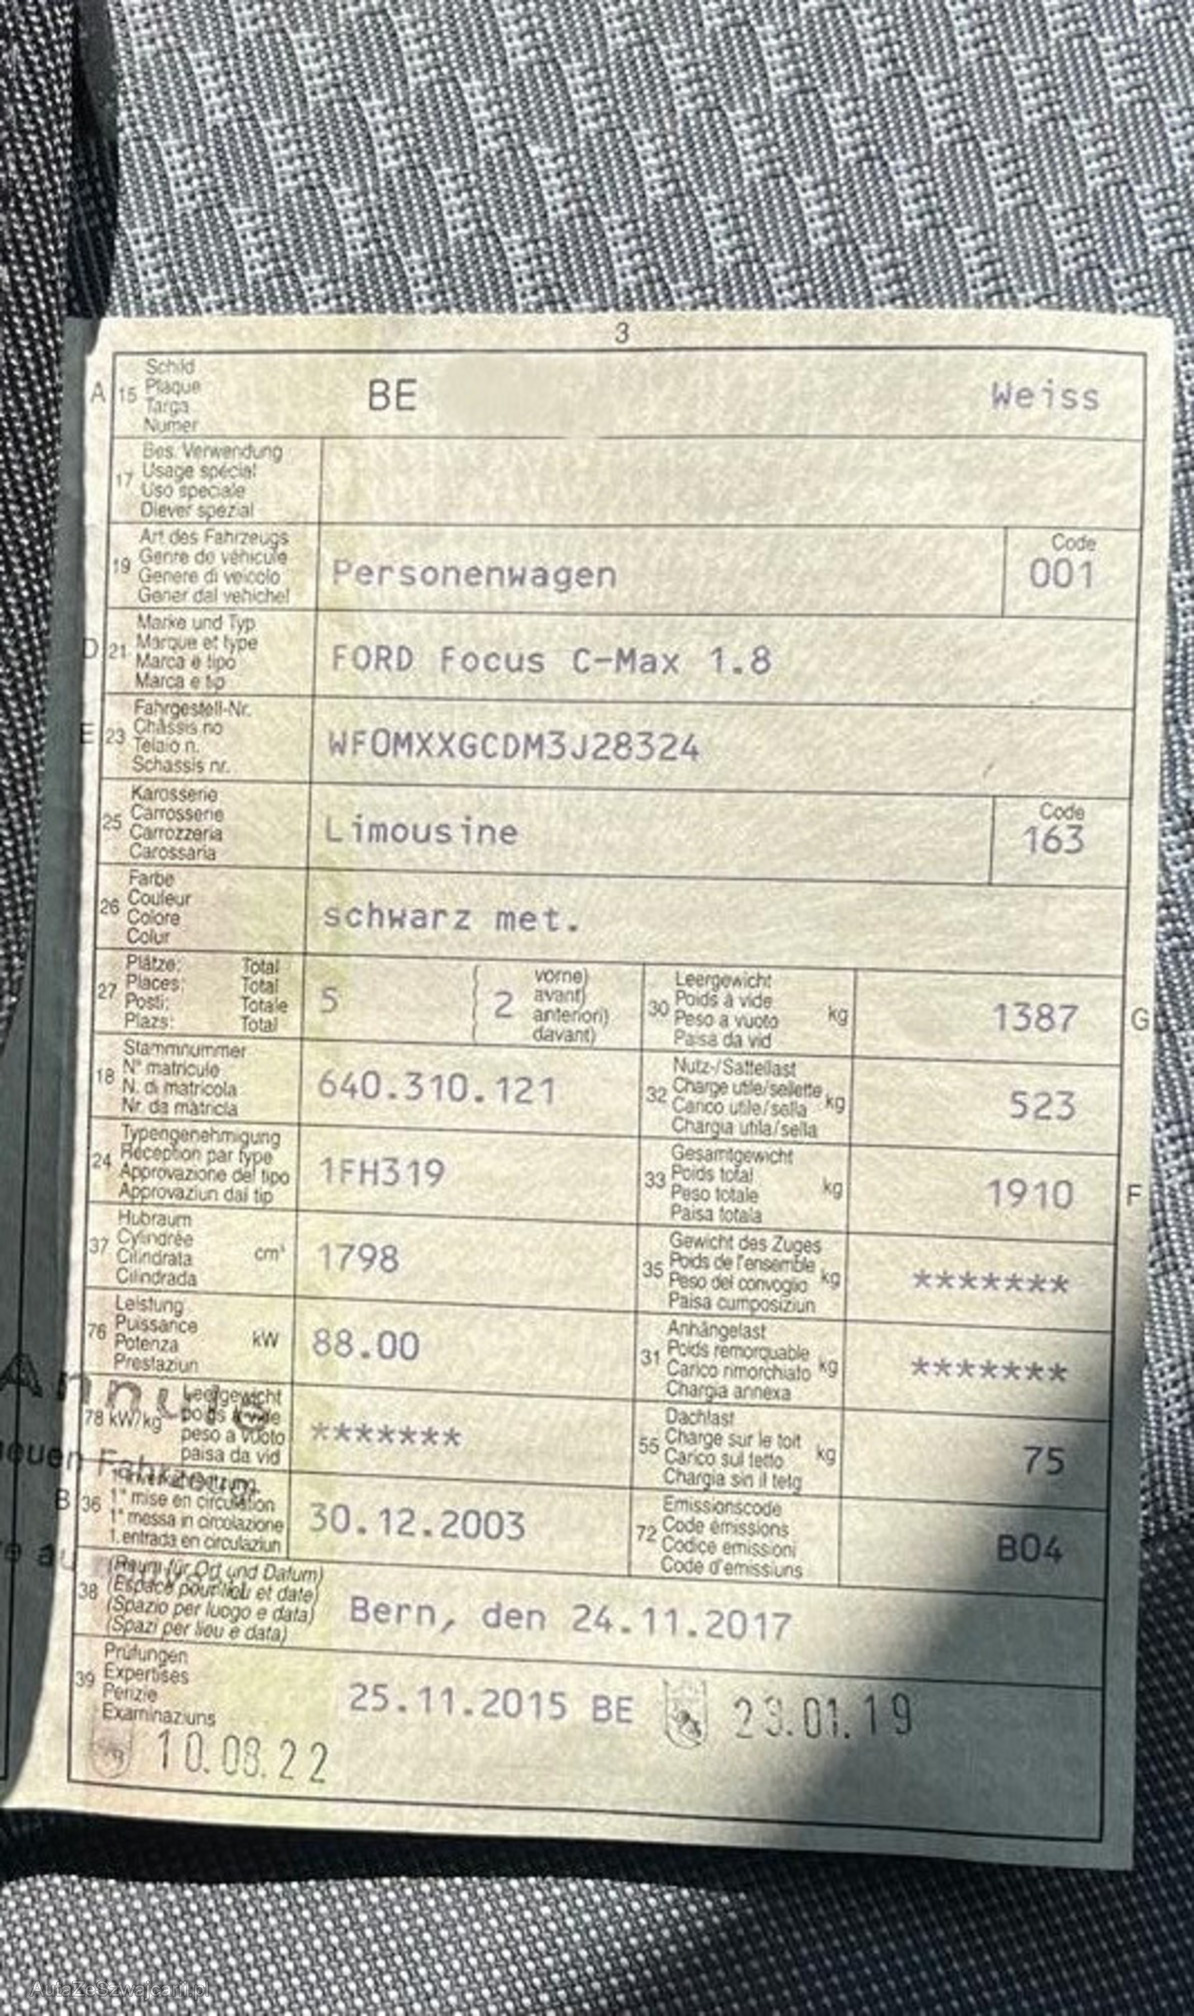 3
A 15 Schild
Plaque
Targa
Numer
BE
Weiss
17 Bes. Verwendung
Usage spécial
Uso speciale
Diever spezial
19 Art des Fahrzeugs
Genre de véhicule
Genere di veicolo
Gener dal vehichel
Personenwagen
Code
001
D 21 Marke und Typ
Marque et type
Marca e tipo
Marca e tip
FORD Focus C-Max 1.8
E 23 Fahrgestell-Nr.
Châssis no
Telaio n.
Schassis nr.
WF0MXXGCDM3J28324
25 Karosserie
Carrosserie
Carrozzeria
Carossaria
Limousine
Code
163
26 Farbe
Couleur
Colore
Colur
schwarz met.
27 Plätze: Total
Places: Total
Posti: Totale
Plazs: Total
5
( 2 vorne)
avant)
anteriori)
( davant)
30 Leergewicht
Poids à vide
Peso a vuoto
Paisa da vid
kg
1387 G
18 Stammnummer
N° matricule
N. di matricola
Nr. da matricla
640.310.121
32 Nutz-/Sattellast
Charge utile/sellette
Carico utile/sella
Chargia utila/sella
kg
523
24 Typengenehmigung
Réception par type
Approvazione del tipo
Approvaziun dal tip
1FH319
33 Gesamtgewicht
Poids total
Peso totale
Paisa totala
kg
1910 F
37 Hubraum
Cylindrée
Cilindrata
Cilindrada
cm³
1798
35 Gewicht des Zuges
Poids de l'ensemble
Peso del convoglio
Paisa cumposiziun
kg
*******
76 Leistung
Puissance
Potenza
Prestaziun
kW
88.00
31 Anhängelast
Poids remorquable
Carico rimorchiato
Chargia annexa
kg
*******
Annulé
78 kW/kg Leergewicht
poids à vide
peso a vuoto
paisa da vid
*******
55 Dachlast
Charge sur le toit
Carico sul tetto
Chargia sin il tetg
kg
75
Fahrzeug
B 36
1re mise en circulation
1a messa in circolazione
1. entrada en circulaziun
30.12.2003
72 Emissionscode
Code émissions
Codice emissioni
Code d'emissiuns
B04
38 (Raum für Ort und Datum)
(Espace pour lieu et date)
(Spazio per luogo e data)
(Spazi per lieu e data)
Bern, den 24.11.2017
39 Prüfungen
Expertises
Perizie
Examinaziuns
25.11.2015 BE
23.01.19
10.08.22
AutaZeSzwajcarii.pl